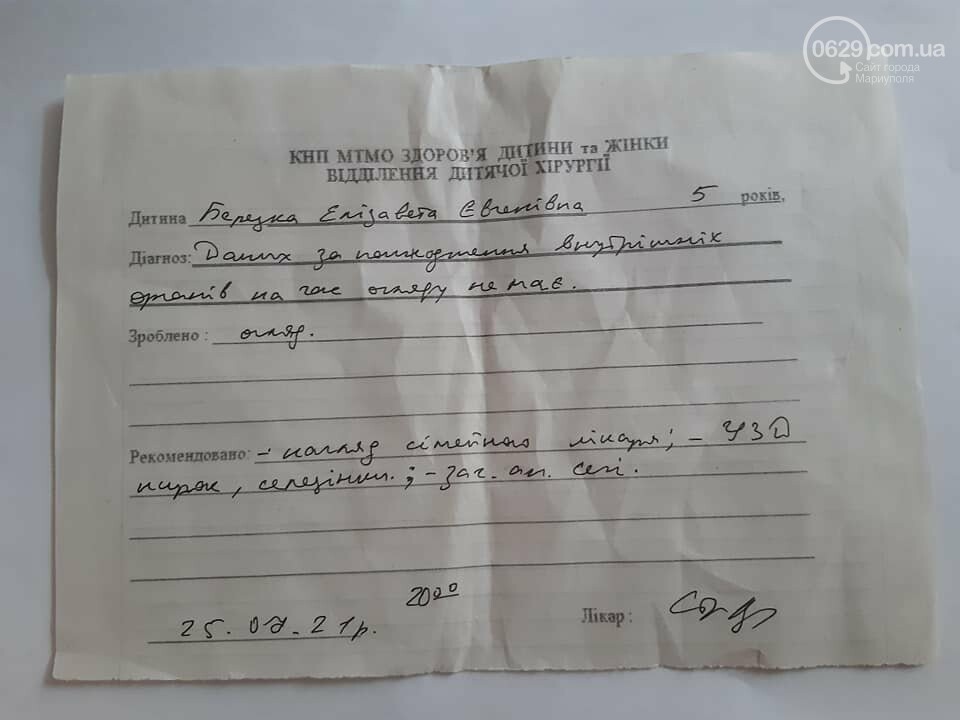 0629.com.ua
Сайт города
Мариуполя
КНП МТМО ЗДОРОВ'Я ДИТИНИ та ЖІНКИ
ВІДДІЛЕННЯ ДИТЯЧОЇ ХІРУРГІЇ
Дитина Берецка Елізавета Євгенівна 5 років,
Діагноз: Даних за пошкодження внутрішніх
органів на час огляду немає.
Зроблено : огляд.
Рекомендовано: - нагляд сімейного лікаря; - УЗД
нирок, селезінки.; - заг. ан. сечі.
20⁰⁰
25.07.21р.
Лікар :